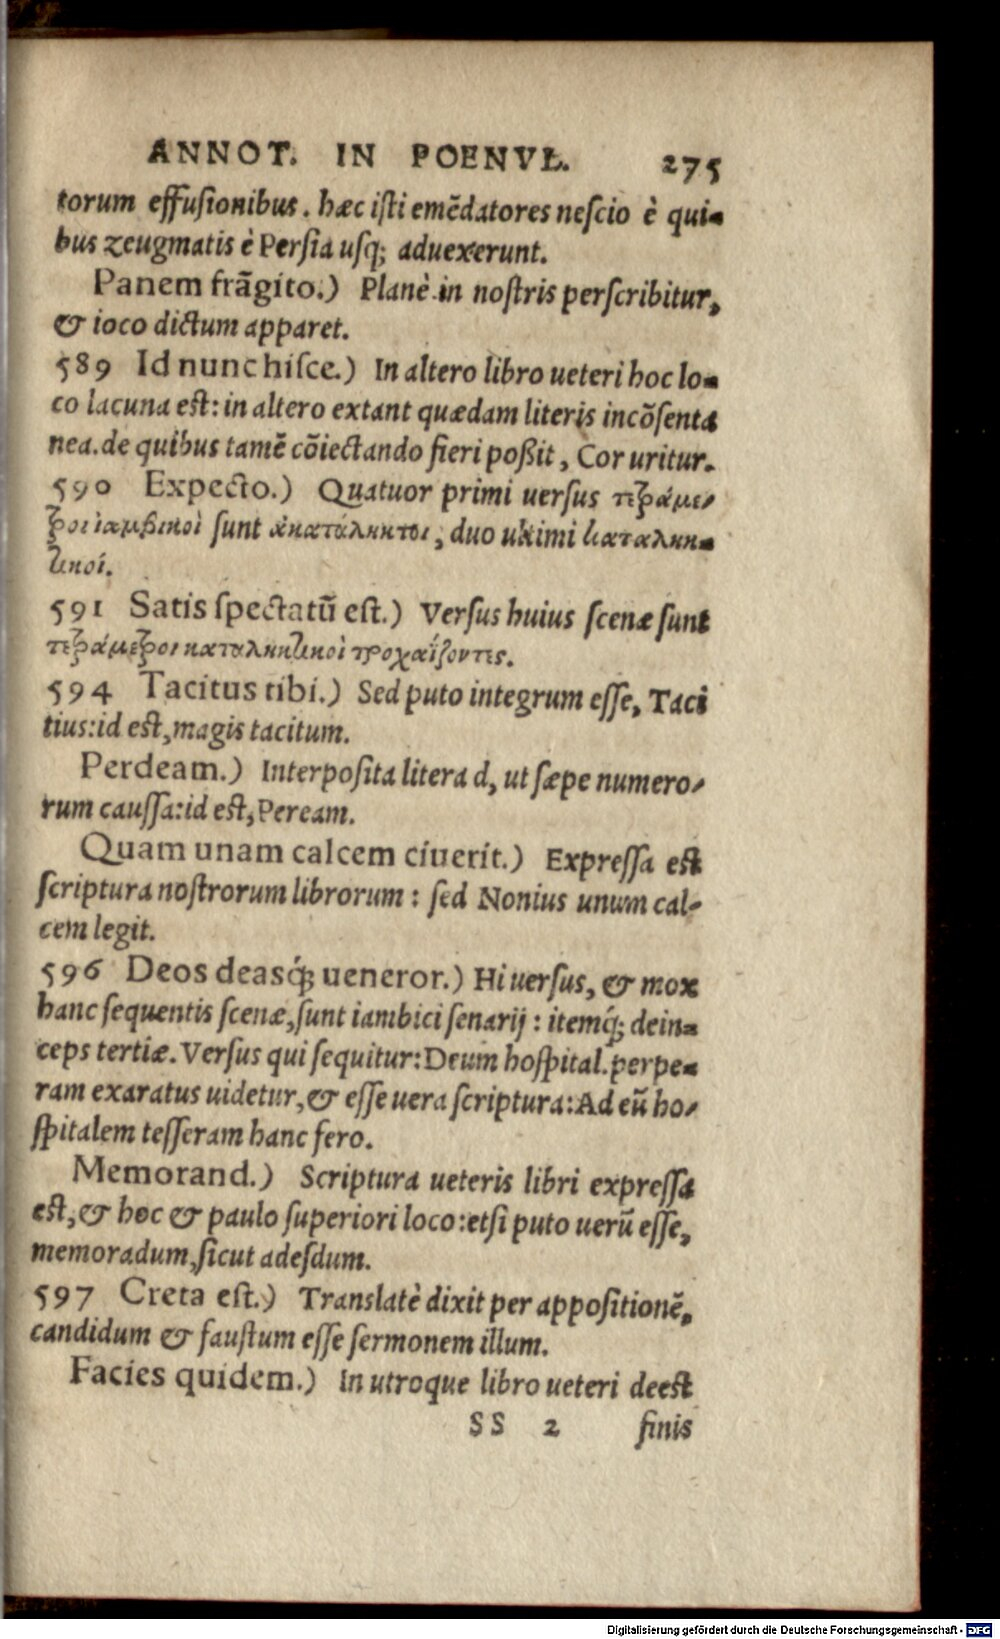 ANNOT. IN POENVL. 275
torum effusionibus. hæc isti emẽdatores nescio è qui-
bus zeugmatis è Persia usq; aduexerunt.
Panem frãgito.) Planè in nostris perscribitur,
& ioco dictum apparet.
589 Id nunc hisce.) In altero libro ueteri hoc lo-
co lacuna est: in altero extant quædam literis incõsenta
nea. de quibus tamẽ cõiectando fieri poßit, Cor uritur.
590 Expecto.) Quatuor primi uersus τετράμε-
τροι ἰαμβικοὶ sunt ἀκατάληκτοι, duo ultimi καταλη-
κτικοί.
591 Satis spectatũ est.) Versus huius scenæ sunt
τετράμετροι καταληκτικοὶ τροχαΐζοντες.
594 Tacitus tibi.) Sed puto integrum esse, Taci
tius: id est, magis tacitum.
Perdeam.) Interposita litera d, ut sæpe numero-
rum caussa: id est, Peream.
Quam unam calcem ciuerit.) Expressa est
scriptura nostrorum librorum: sed Nonius unum cal-
cem legit.
596 Deos deasq́; ueneror.) Hi uersus, & mox
hanc sequentis scenæ, sunt iambici senarij: itemq́; dein-
ceps tertiæ. Versus qui sequitur: Deum hospital. perpe-
ram exaratus uidetur, & esse uera scriptura: Ad eũ ho-
spitalem tesseram hanc fero.
Memorand.) Scriptura ueteris libri expressa
est, & hoc & paulo superiori loco: etsi puto uerũ esse,
memoradum, sicut adesdum.
597 Creta est.) Translatè dixit per appositionẽ,
candidum & faustum esse sermonem illum.
Facies quidem.) In utroque libro ueteri deest
SS 2 finis
Digitalisierung gefördert durch die Deutsche Forschungsgemeinschaft - DFG